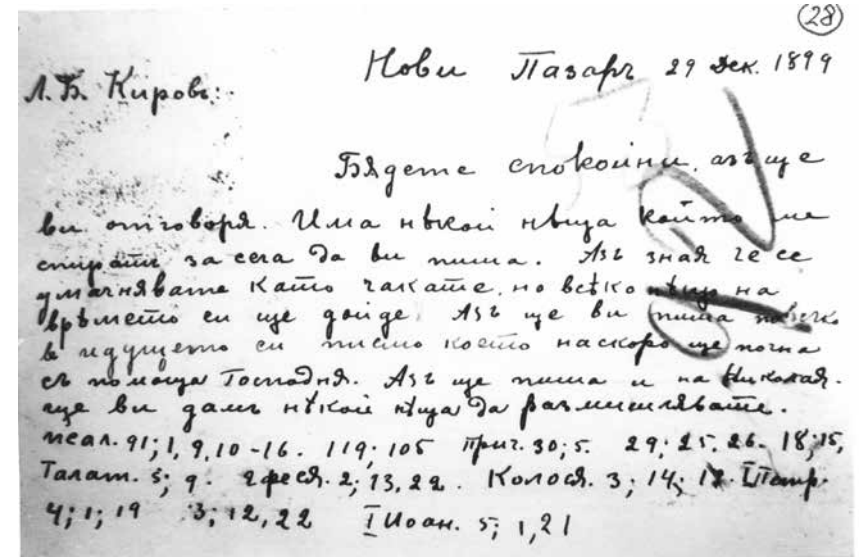 28
Нови Пазаръ 29 Дек. 1899
Л. Б. Кировъ:
Бѫдете спокойни, азъ ще
ви отговорѭ. Има нѣкои нѣща който ме
спиратъ за сега да ви пиша. Азъ знаѭ че се
умъчнявате като чакате, но всѣко нѣщо на
врѣмето си ще дойде. Азъ ще ви пиша повечко
в идущето си писмо което наскоро ще почна
съ помоща Господня. Азъ ще пиша и на Николая.
ще ви дамъ нѣкои нѣща да размишлявате.
псал. 91; 1, 9, 10-16. 119; 105 Прит. 30; 5. 29; 25. 26. 18; 15,
Галат. 5; 9. Ефеся. 2; 13, 22. Колося. 3; 14; I Петр.
4; 1; 19 3; 12, 22 I Иоан. 5; 1, 21